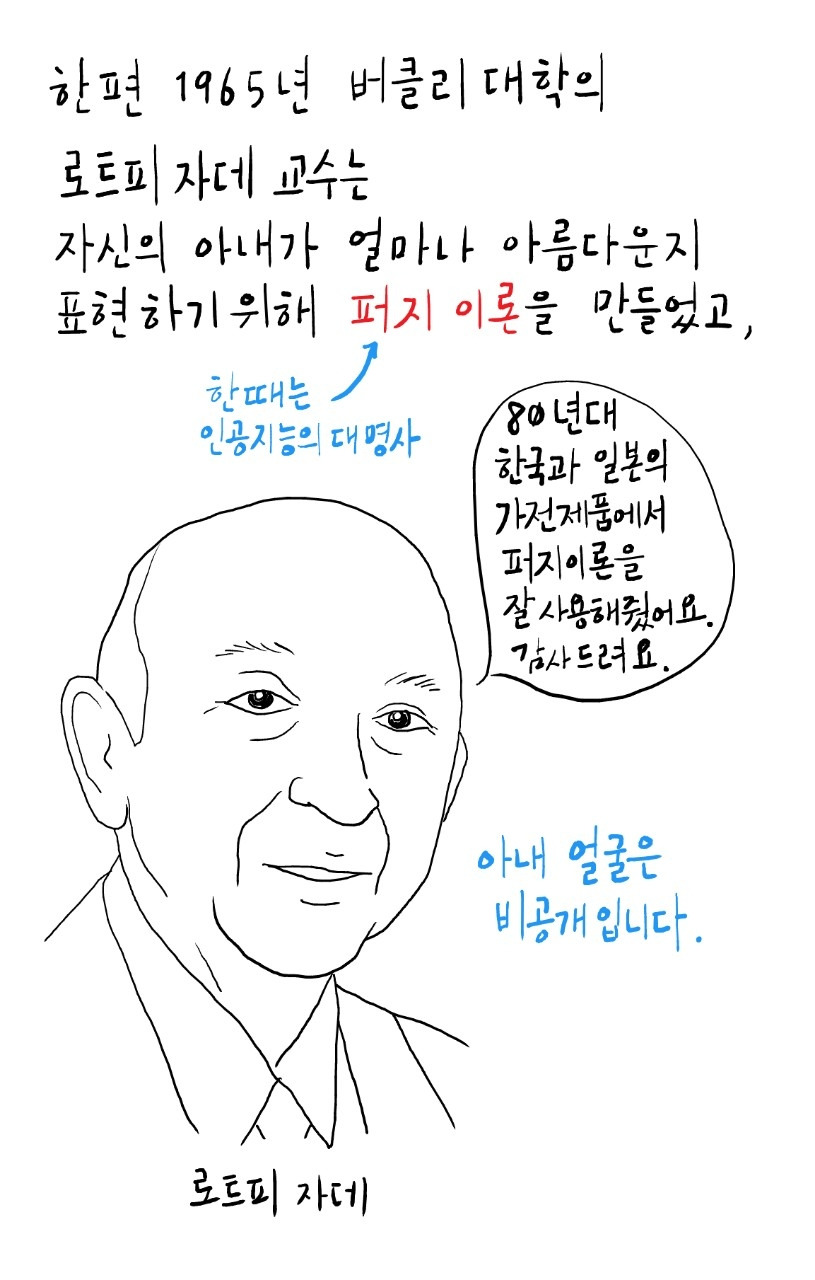 한편 1965년 버클리 대학의
로트피 자데 교수는
자신의 아내가 얼마나 아름다운지
표현하기 위해 퍼지 이론을 만들었고,
한때는
인공지능의 대명사
80년대
한국과 일본의
가전제품에서
퍼지이론을
잘 사용해줬어요.
감사드려요.
아내 얼굴은
비공개입니다.
로트피 자데